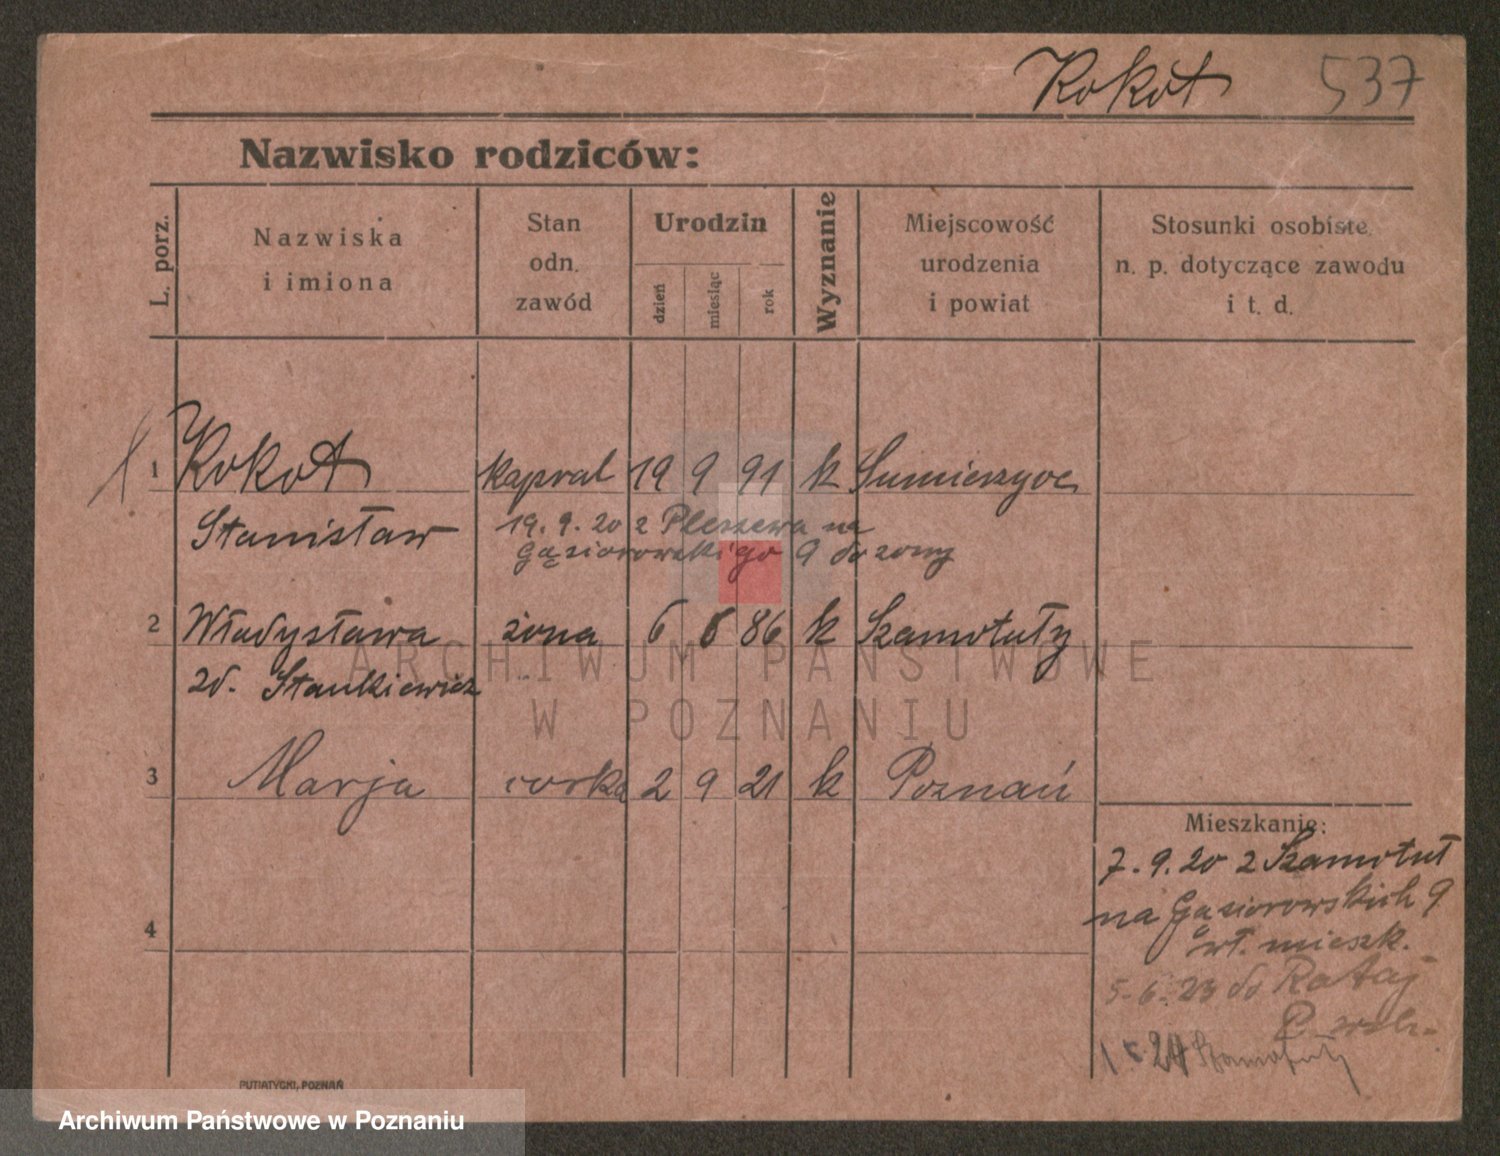 Kokot 537
Nazwisko rodziców:
L. porz.
Nazwiska
i imiona
Stan
odn.
zawód
Urodzin
dzień
miesiąc
rok
Wyznanie
Miejscowość
urodzenia
i powiat
Stosunki osobiste,
n. p. dotyczące zawodu
i t. d.
1 Kokot kapral 19 9 91 k
Stanisław 19.9.20 z Pleszewa na
Gąsiorowskiego 9 do żony
2 Władysława żona 6 6 86 k Szamotuły
zd. Stankiewicz
3 Marja córka 2 9 21 k Poznań
Mieszkanie:
7.9.20 z Szamotuł
na Gąsiorowskich 9
wł. mieszk.
5.6.23 do Rataj
24 Szamotuły
4
PUTIATYCKI, POZNAŃ
ARCHIWUM PAŃSTWOWE
W POZNANIU
Archiwum Państwowe w Poznaniu